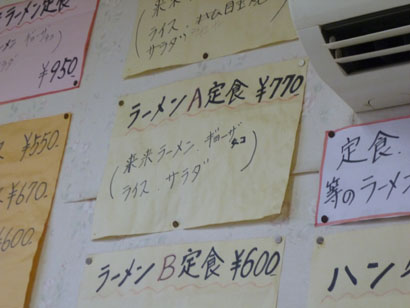 ラーメン定食
¥950
来来ラーメン
ライス
サラダ
ラーメンA定食 ¥770
(来来ラーメン.ギョーザ
ライス.サラダ)
¥550.
¥670.
¥600.
定食.
等のラーメン
ラーメンB定食 ¥600
ハン